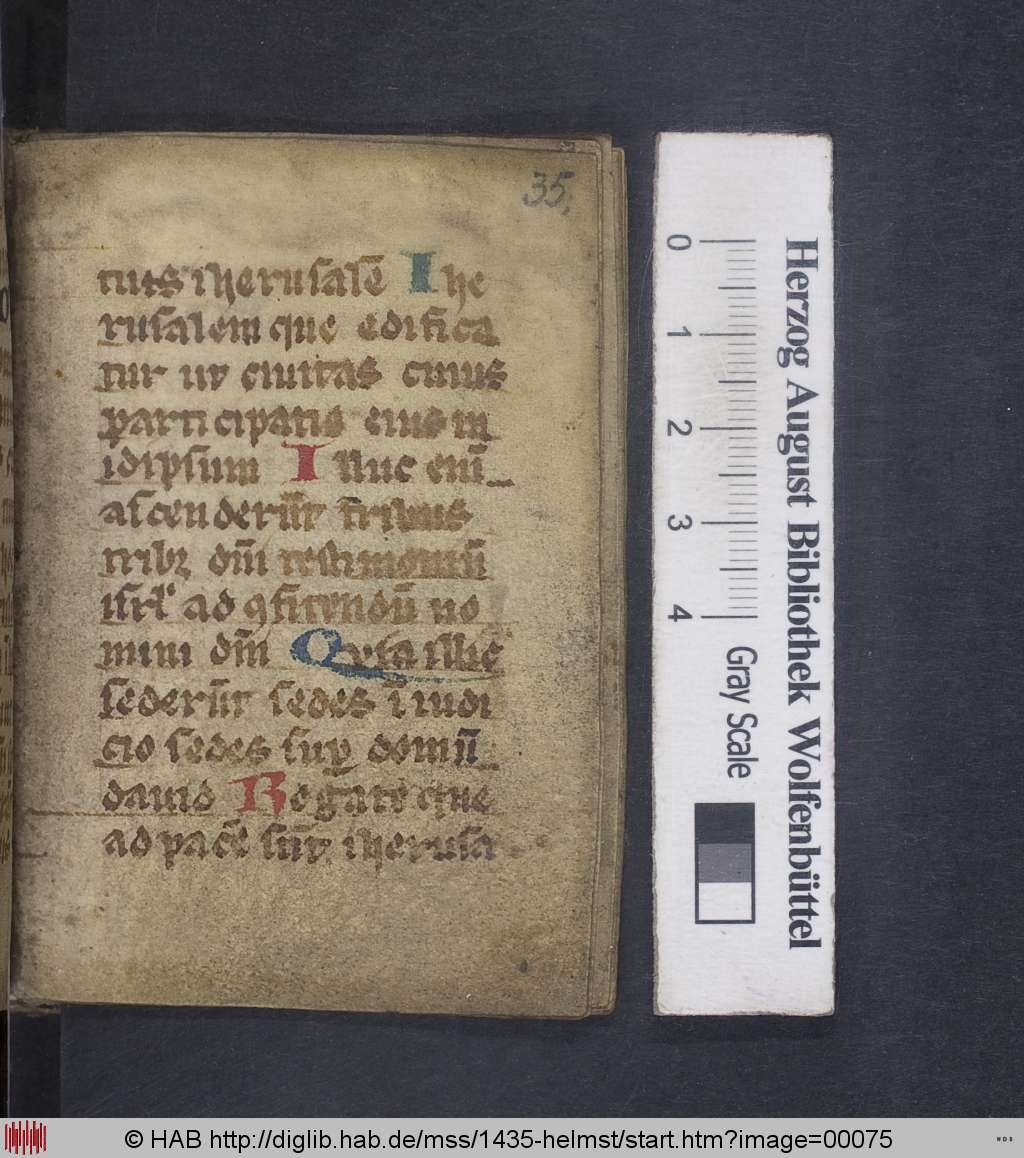 35.
tuis iherusalē Ihe
rusalem que edifica
tur ut ciuitas cuius
participatio eius in
idipsum Illuc eni͞
ascenderūt tribus
tribꝫ dn͞i testimoniū
isrl' ad ꝯfitendū no
mini dn͞i Quia illic
sederūt sedes ī iudi
cio sedes sup̱ domū
dauid Rogate que
ad pacē sūt iherusa
0 1 2 3 4
Gray Scale
Herzog August Bibliothek Wolfenbüttel
© HAB http://diglib.hab.de/mss/1435-helmst/start.htm?image=00075